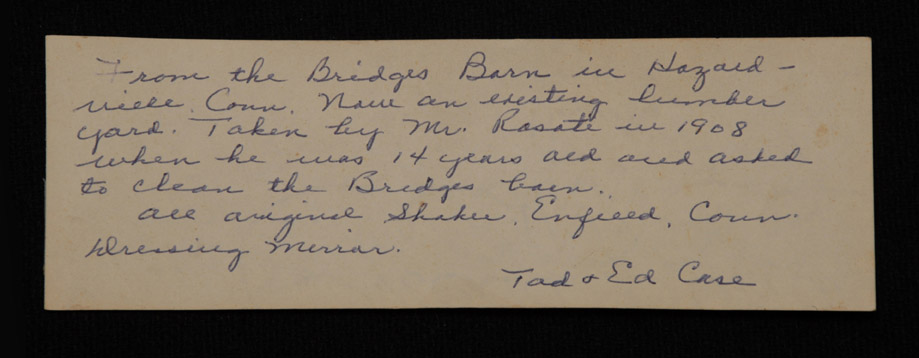 From the Bridges Barn in Hazard-
ville, Conn. Now an existing lumber
yard. Taken by Mr. Rosati in 1908
when he was 14 years old and asked
to clean the Bridges barn.
All original Shaker, Enfield, Conn.
Dressing Mirror.
Tad & Ed Case